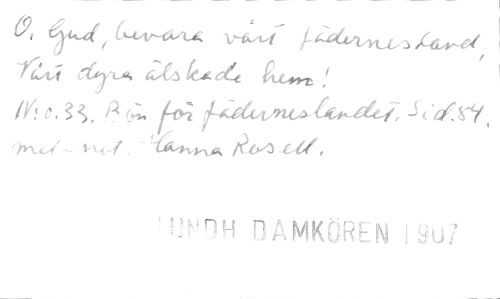 O, Gud, bevara vårt fädernesland,
Vårt dyra älskade hem!
N:o.33. Bön för fäderneslandet. Sid.84.
mel-not. Hanna Rosell.
LUNDH DAMKÖREN 1907